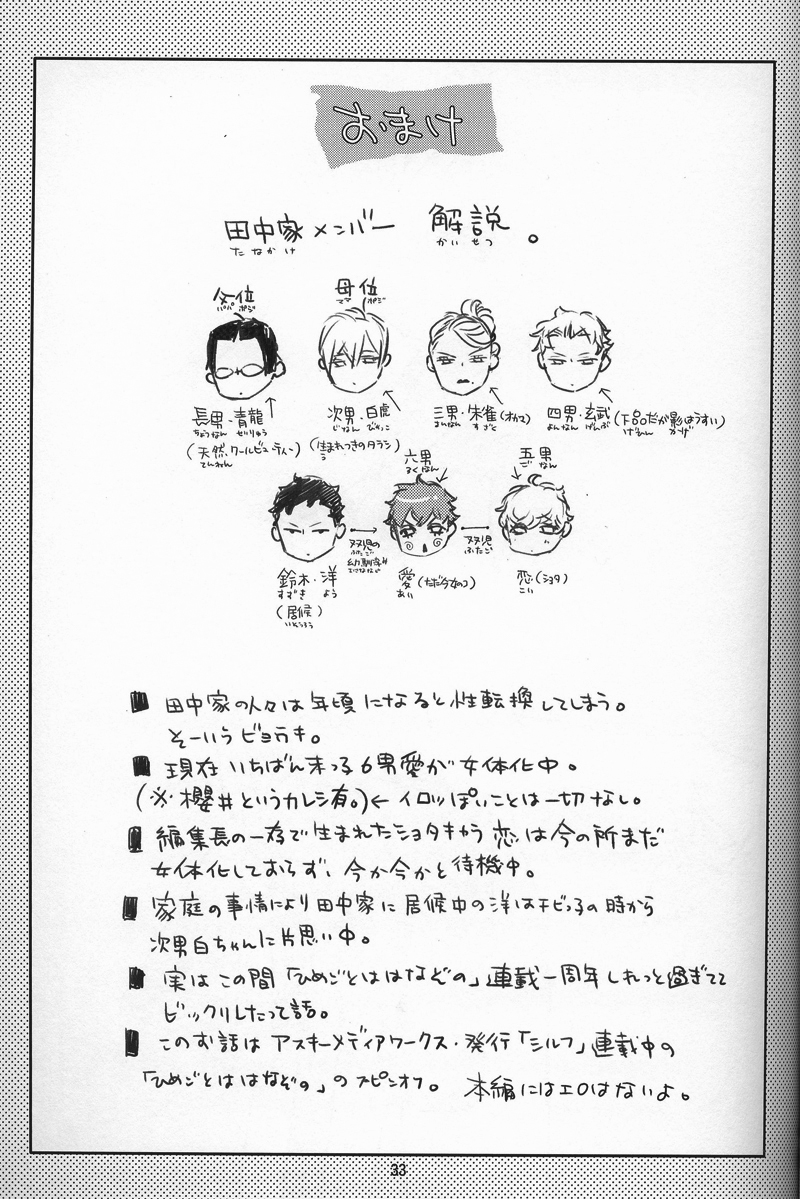 おまけ
田中家メンバー 解説。
たなかけ かいせつ
父位 母位
パパポジ ママポジ
長男・青龍 次男・白虎 三男・朱雀(オカマ) 四男・玄武(下品だが影はうすい)
ちょうなん せいりゅう じなん びゃっこ さんなん すざく よんなん げんぶ げひん かげ
(天然、クールビューティー) (生まれつきのタラシ)
てんねん う
六男 五男
ろくなん ごなん
双児の 双児
ふたご ふたご
幼馴字#
鈴木・洋 愛(ただ今女のコ) 恋(ショタ)
すずき よう あい こい
(居候)
いそうろう
■ 田中家の人々は年頃になると性転換してしまう。
そーいうビョーキ。
■ 現在いちばん末っ子6男愛が女体化中。
(※櫻井というカレシ有。)←イロッぽいことは一切なし。
■ 編集長の一存で生まれたショタキャラ恋は今の所まだ
女体化しておらず、今か今かと待機中。
■ 家庭の事情により田中家に居候中の洋はチビっ子の時から
次男白ちゃんに片思い中。
■ 実はこの間「ひめごとははなぞの」連載一周年しれっと過ぎてて
ビックリしたって話。
■ このお話はアスキーメディアワークス・発行「シルフ」連載中の
「ひめごとははなぞの」のスピンオフ。 本編にはエロはないよ。
33